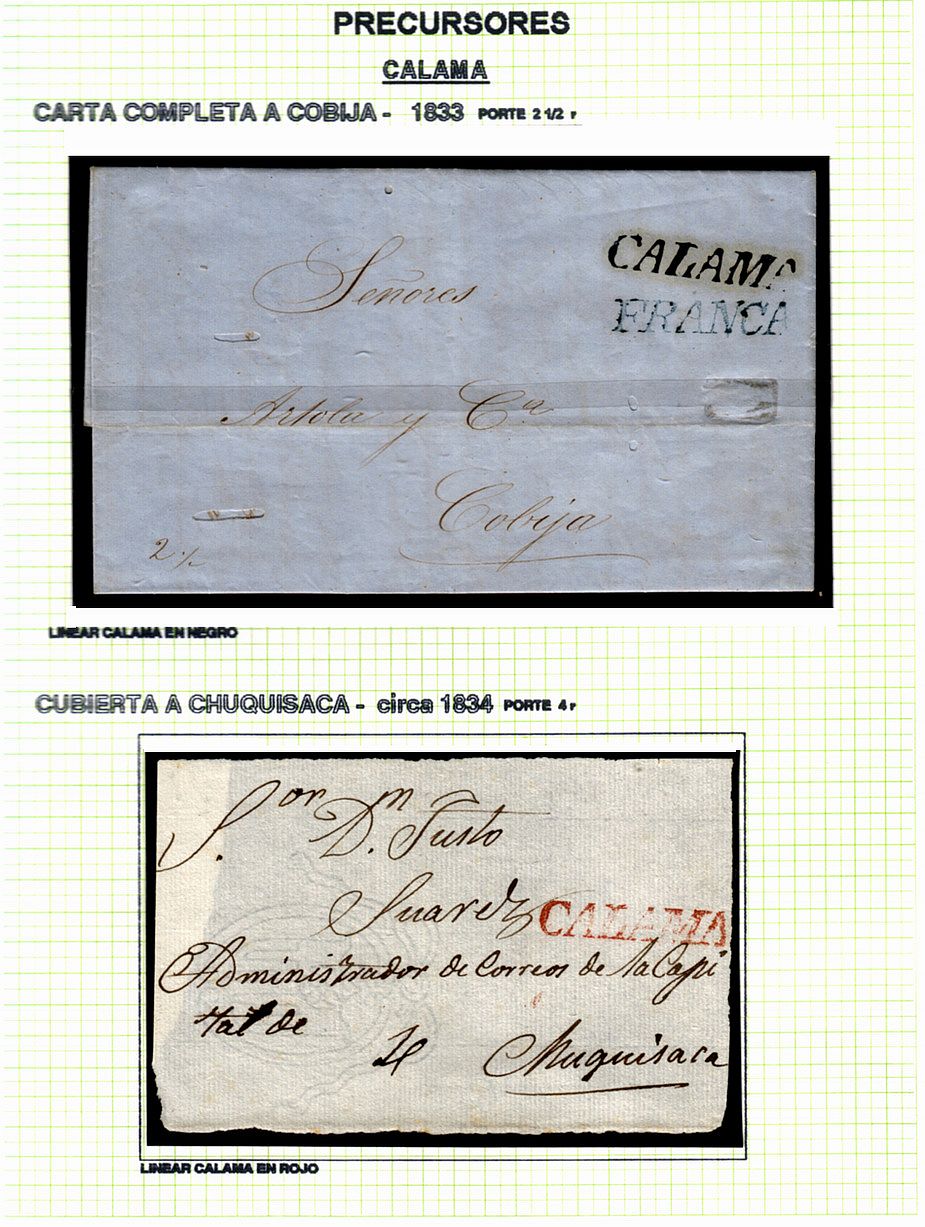 PRECURSORES
CALAMA
CARTA COMPLETA A COBIJA - 1833 PORTE 2 1/2 r
CALAMA
FRANCA
Señores
Artola y Cª
Cobija
2 ·/.
LINEAR CALAMA EN NEGRO
CUBIERTA A CHUQUISACA - circa 1834 PORTE 4 r
S.or D.n Justo
Suarez
CALAMA
Administrador de Correos de la Capi
tal de
4
Chuquisaca
LINEAR CALAMA EN ROJO